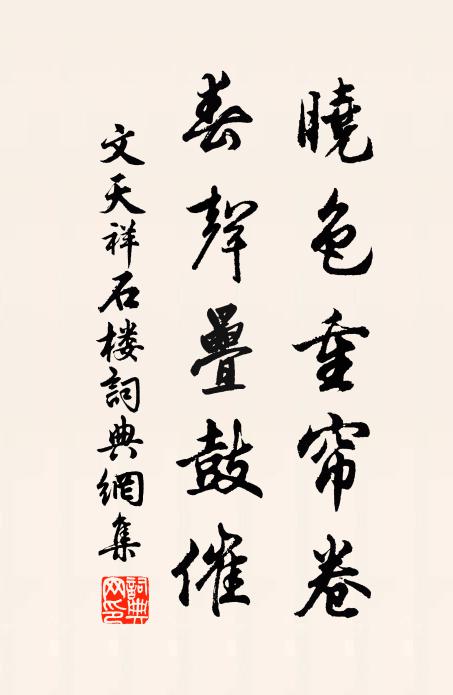 曉色重帘卷
春聲疊鼓催
文天祥石楼詞典網集
詞典網印